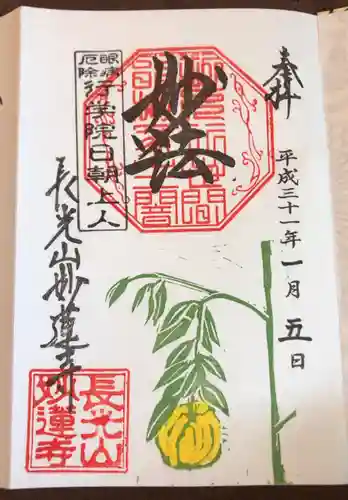 奉拝
平成三十一年一月五日
妙法
眼病
厄除
行学院日朝上人
長光山妙蓮寺
長光山
妙蓮寺